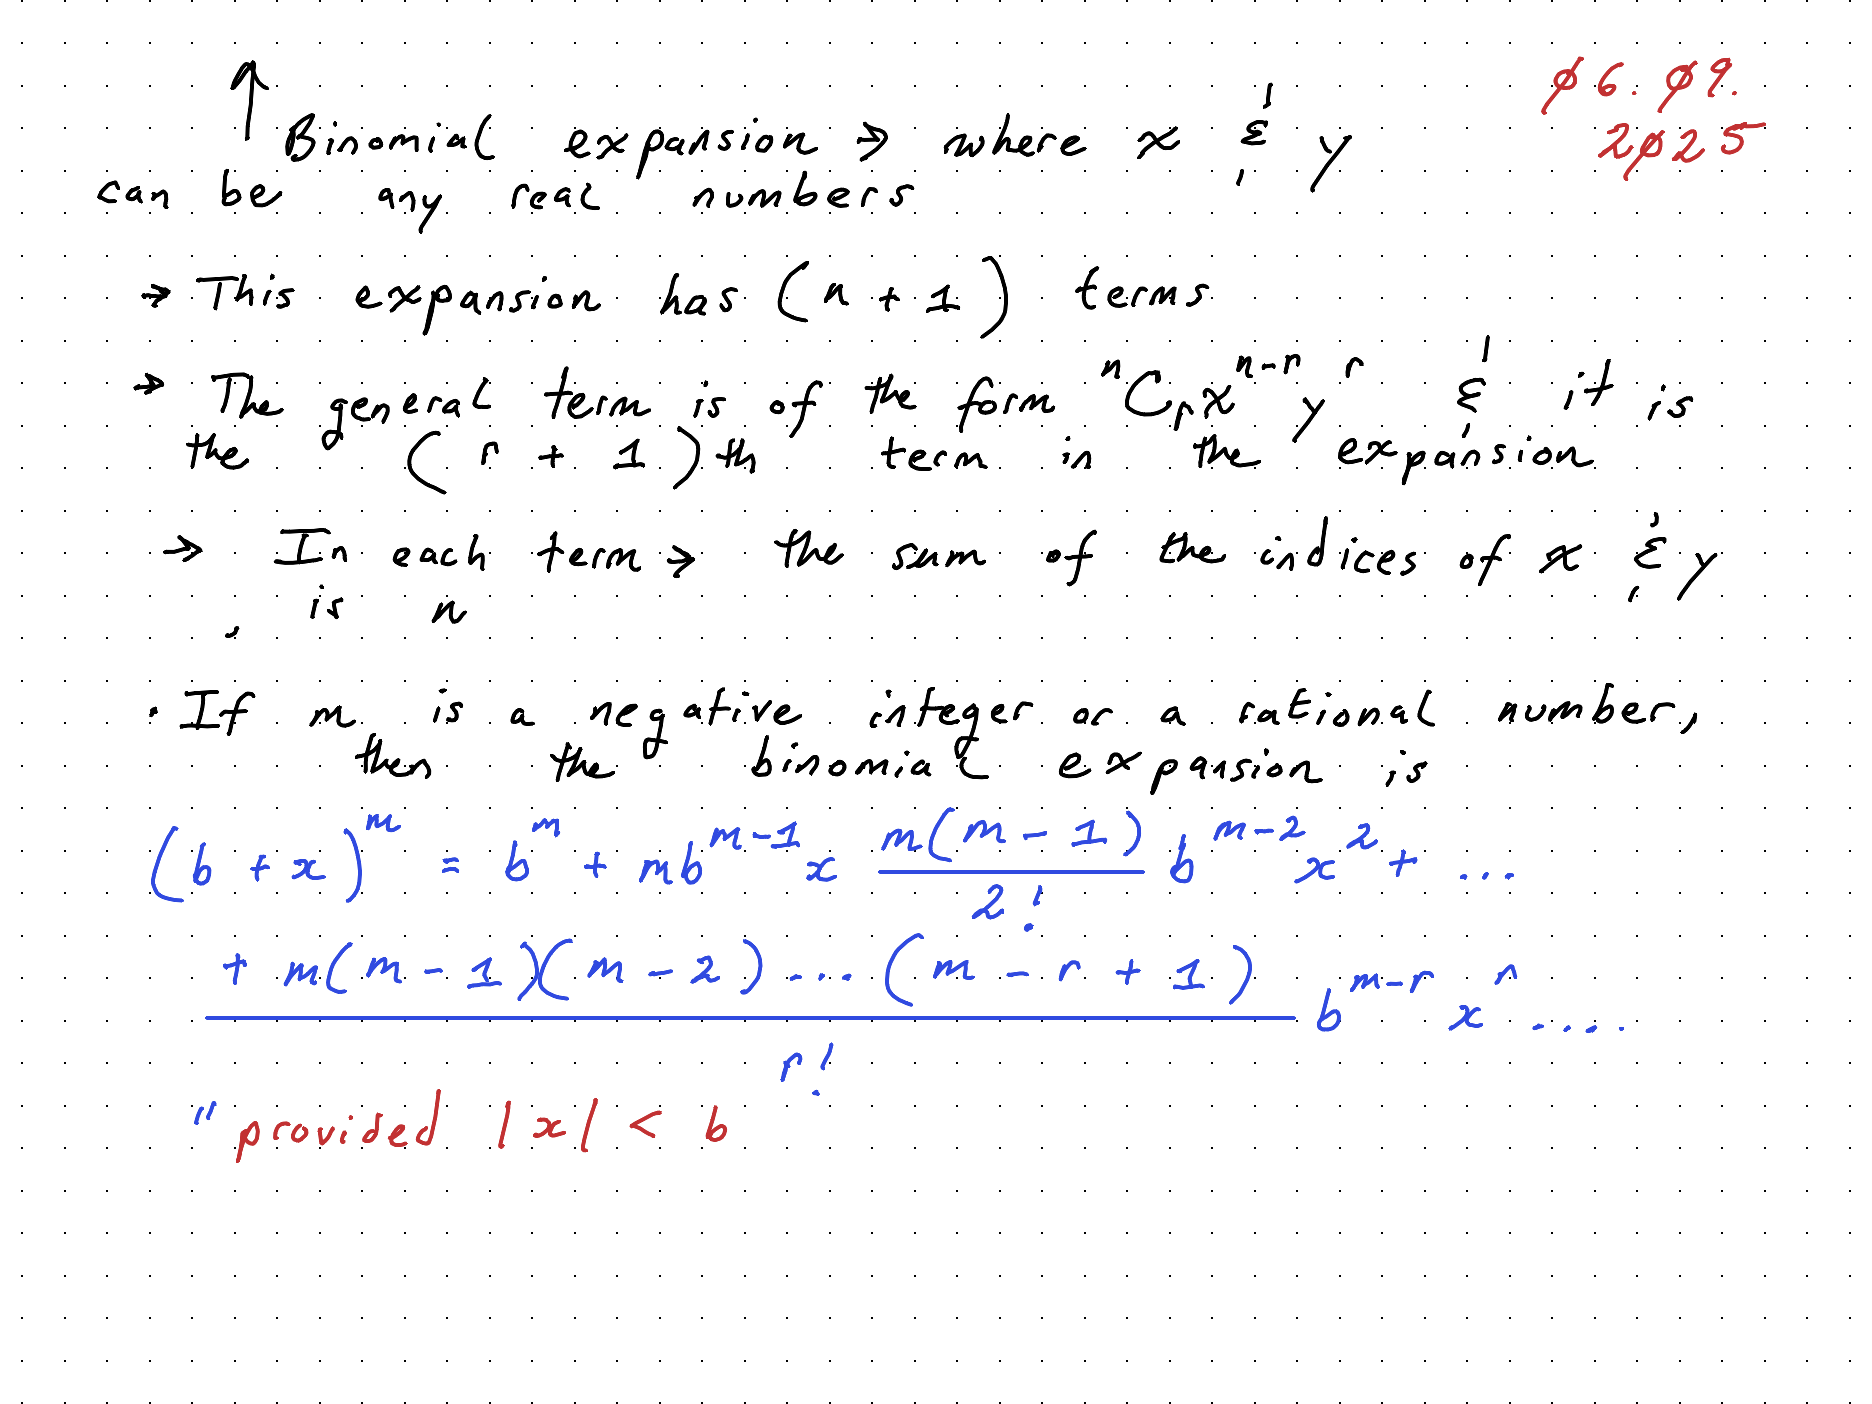 06.09.
2025
↑ Binomial expansion → where x & y
can be any real numbers
→ This expansion has (n + 1) terms
→ The general term is of the form ⁿCᵣxⁿ⁻ʳ yʳ & it is
the (r + 1)th term in the expansion
→ In each term → the sum of the indices of x & y
, is n
· If m is a negative integer or a rational number,
then the binomial expansion is
(b + x)^m = b^m + mb^(m-1) x m(m - 1)/2! b^(m-2) x^2 + ...
+ m(m - 1)(m - 2) ... (m - r + 1)/r! b^(m-r) x^r ....
" provided |x| < b